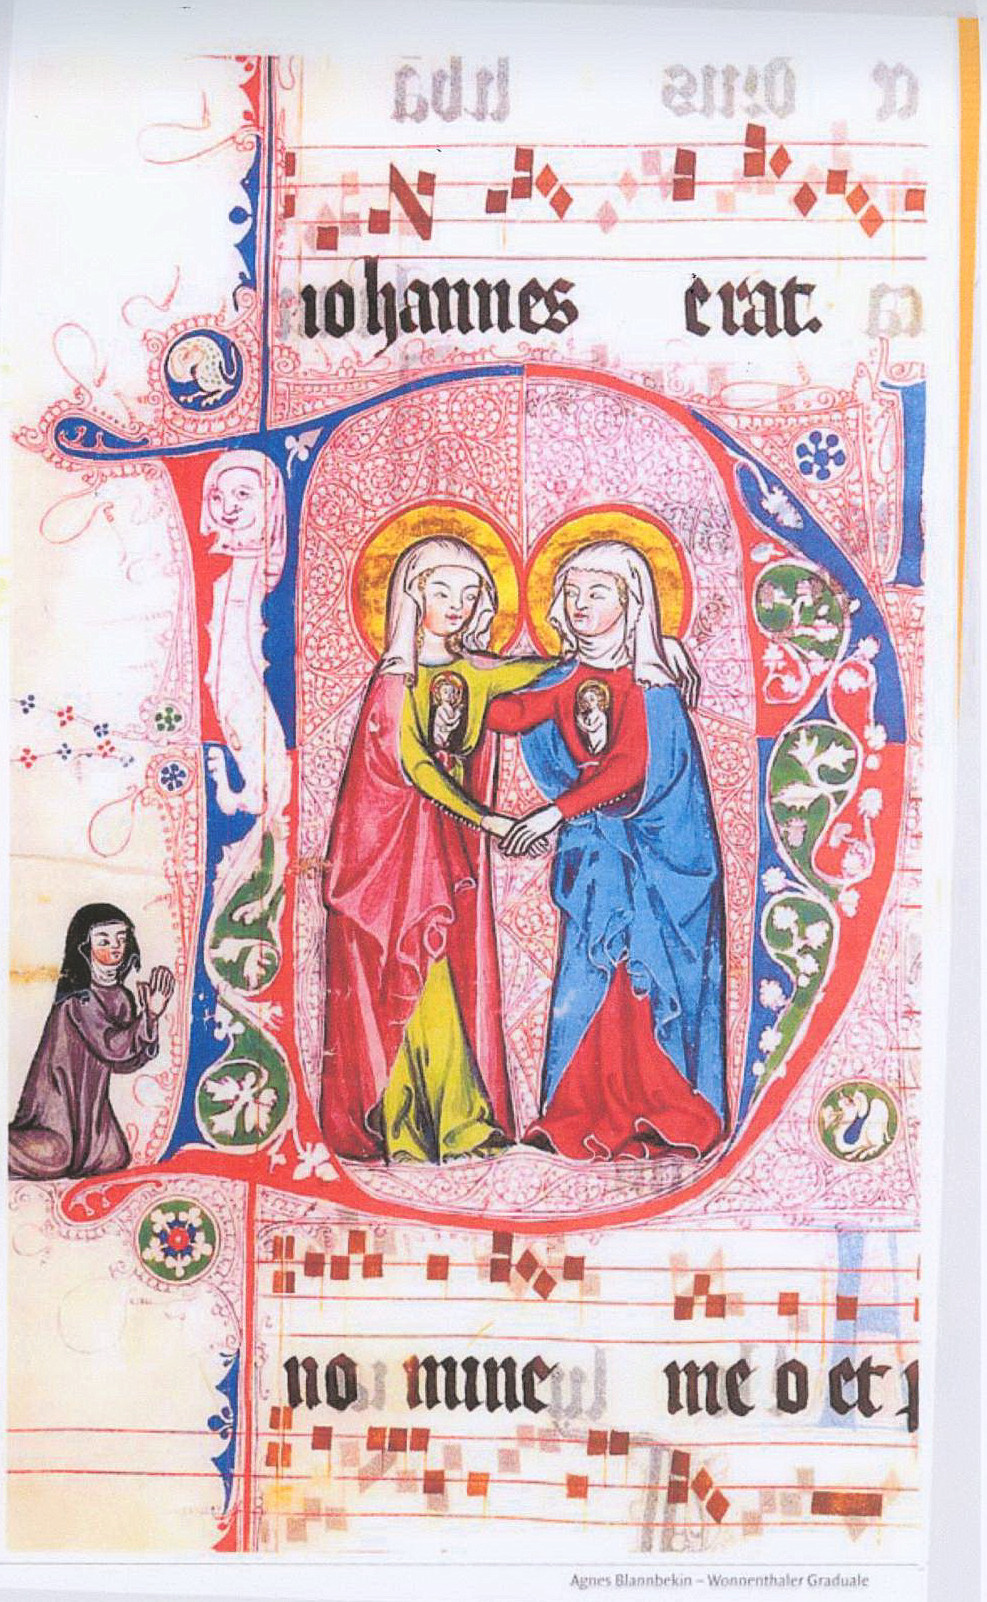 iohannes erat.
no mine me o et p
Agnes Blannbekin – Wonnenthaler Graduale